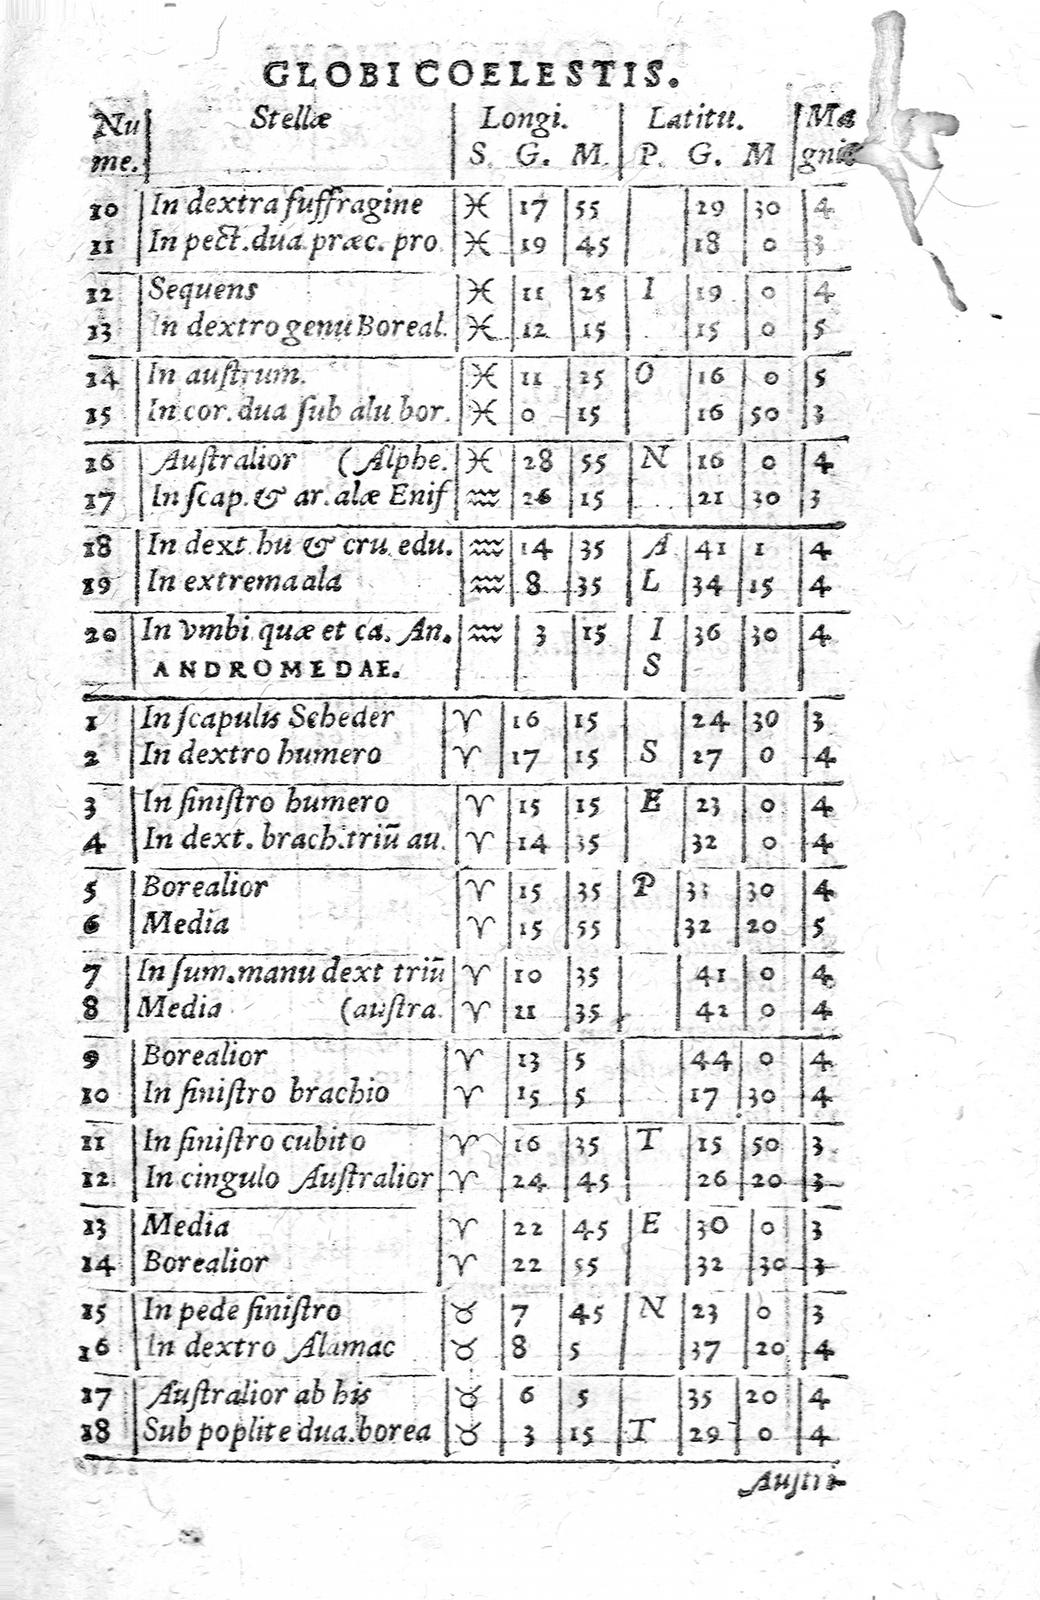 GLOBI COELESTIS.
Nu Stellæ Longi. Latitu. Ma
me. S. G. M. P. G. M gni
10 In dextra ſuffragine ♓ 17 55 29 30 4
11 In pect. dua præc. pro ♓ 19 45 18 0 3
12 Sequens ♓ 11 25 I 19 0 4
13 In dextro genu Boreal. ♓ 12 15 15 0 5
14 In auſtrum. ♓ 11 25 O 16 0 5
15 In cor. dua ſub alu bor. ♓ 0 15 16 50 3
16 Auſtralior (Alphe. ♓ 28 55 N 16 0 4
17 In ſcap. & ar. alæ Enif ♒ 26 15 21 30 3
18 In dext hu & cru edu. ♒ 14 35 A 41 1 4
19 In extrema ala ♒ 8 35 L 34 15 4
20 In vmbi quæ et ca. An. ♒ 3 15 I 36 30 4
ANDROMEDAE. S
1 In ſcapulis Scheder ♈ 16 15 24 30 3
2 In dextro humero ♈ 17 15 S 27 0 4
3 In ſiniſtro humero ♈ 15 15 E 23 0 4
4 In dext. brach. triū au. ♈ 14 35 32 0 4
5 Borealior ♈ 15 35 P 33 30 4
6 Media ♈ 15 55 32 20 5
7 In ſum. manu dext triū ♈ 10 35 41 0 4
8 Media (auſtra. ♈ 11 35 42 0 4
9 Borealior ♈ 13 5 44 0 4
10 In ſiniſtro brachio ♈ 15 5 17 30 4
11 In ſiniſtro cubito ♈ 16 35 T 15 50 3
12 In cingulo Auſtralior ♈ 24 45 26 20 3
13 Media ♈ 22 45 E 30 0 3
14 Borealior ♈ 22 55 32 30 3
15 In pede ſiniſtro ♉ 7 45 N 23 0 3
16 In dextro Alamac ♉ 8 5 37 20 4
17 Auſtralior ab his ♉ 6 5 35 20 4
18 Sub poplite dua. borea ♉ 3 15 T 29 0 4